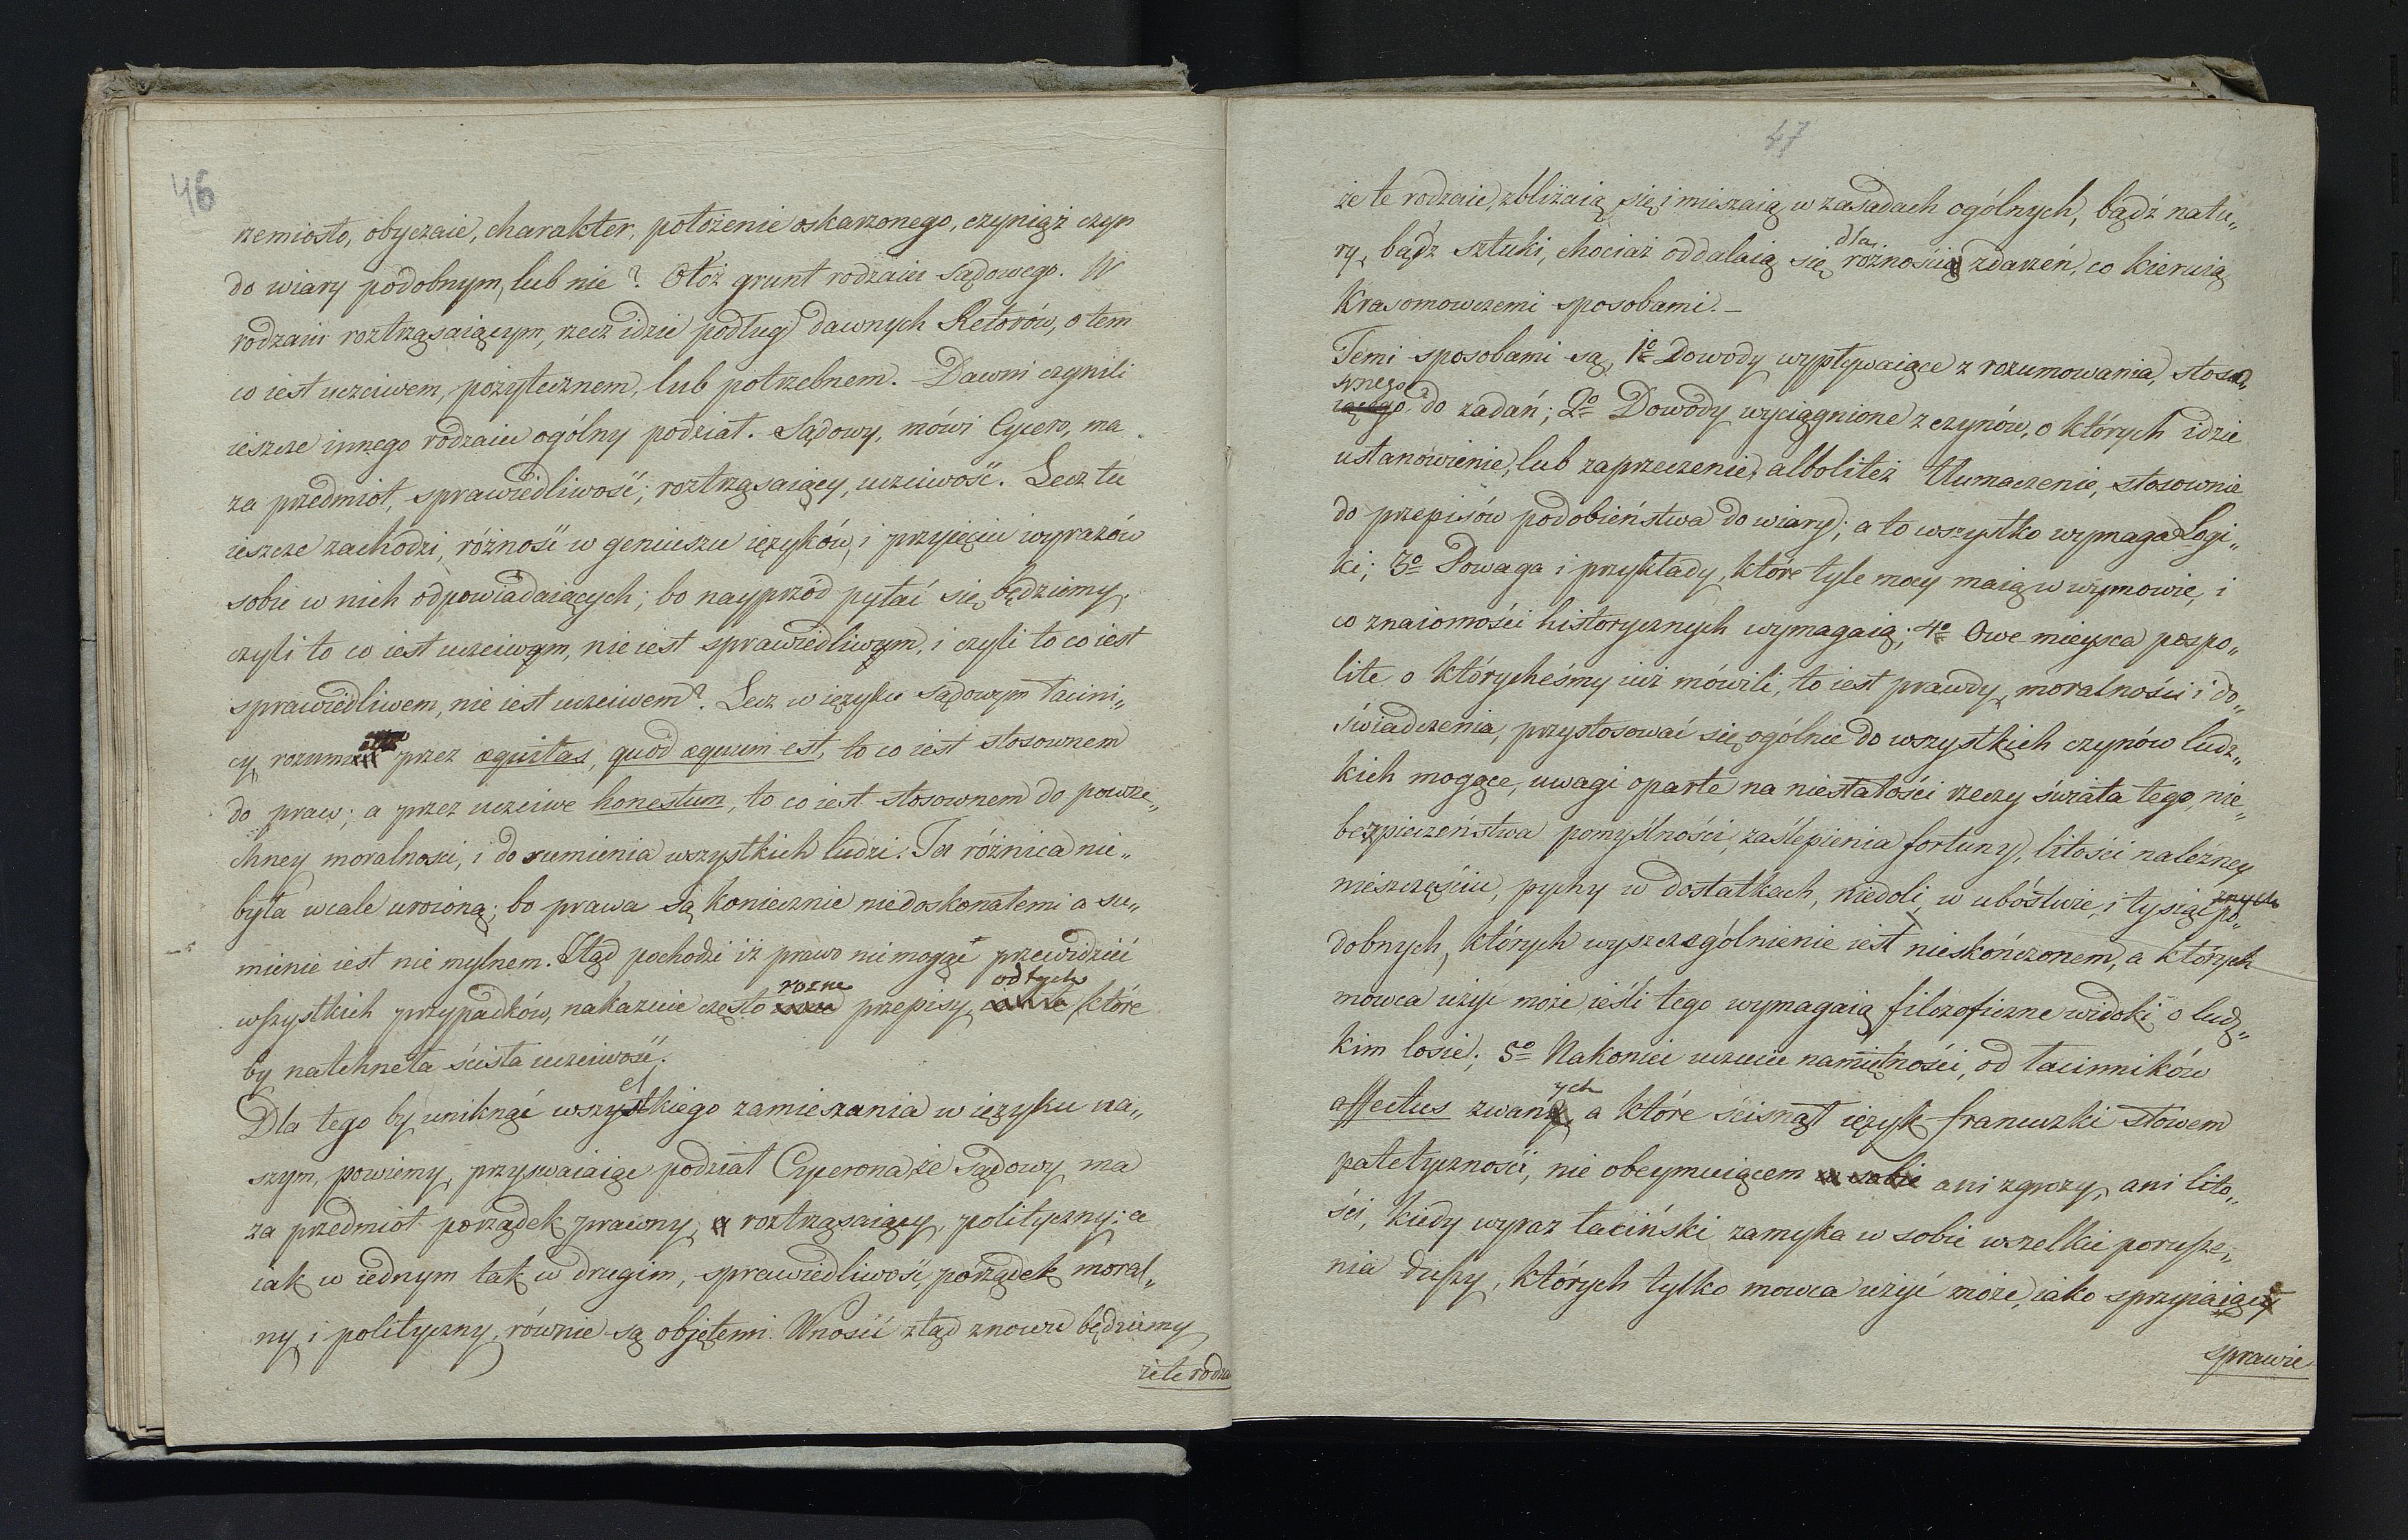 46
rzemiosło, obyczaie, charakter, położenie oskarzonego, czyniąż czyn
do wiary podobnym, lub nie? Otoż grunt rodzaiu sądowego. W
rodzaiu roztrząsaiącym, rzecz idzie podług dawnych Retorów, o tem
co iest uczciwem, pożytecznem, lub potrzebnem. Dawni czynili
ieszcze innego rodzaiu ogólny podział. Sądowy, mówi Cycero, ma
za przedmiot, sprawiedliwość; roztrząsaiący, uczciwość. Lecz tu
ieszcze zachodzi, różność w geniuszu ięzyków, i przyięciu wyrazów
sobie w nich odpowiadaiących; bo nayprzód pytać się będziemy.
czyli to co iest uczciwym, nie iest sprawiedliwym, i czyli to co iest
sprawiedliwem, nie iest uczciwem? Lecz w ięzyku sądowym łacini„
cy rozum przez æquitas, quod æquum est, to co iest stosownem
do praw; a przez uczciwe honestum, to co iest stosownem do powsze„
chney moralnosci, i do sumienia wszystkich ludzi. Ta różnica nie„
była wcale uroioną; bo prawa są koniecznie niedoskonałemi a su„
mienie iest nie mylnem. Ztąd pochodzi iż prawo nie mogąc przewidzieć
rozne od tych
wszystkich przypadków, nakazuie często przepisy, które
by natchneła ścisła uczciwość.
el
Dla tego by uniknąć wszystkiego zamieszania w ięzyku na„
szym, powiemy, przyswaiaiąc podział Cycerona, że Sądowy ma
za przedmiot porządek prawny, a roztrząsaiący, polityczny: a
iak w iednym tak w drugim, sprawiedliwość, porządek moral„
ny i polityczny, równie są objętemi. Wnosić ztąd znowu będziemy
że te rodza
47
że te rodzaie, zbliżaią się i mieszaią w zasadach ogólnych, bądź natu„
dla
ry, bądz sztuki, chociaż oddalaią się różności zdarzeń, co kieruią
Krasomowczemi sposobami.—
Temi sposobami są, 1º Dowody wypływaiące z rozumowania, stoso„
wnego
iącego do zadań; 2º Dowody wyciągnione z czynów, o których idzie
ustanowienie, lub zaprzeczenie, alboliteż tłumaczenie, stosownie
do przepisów podobieństwa do wiary; a to wszystko wymaga Logi„
ki; 3º Powaga i przykłady, które tyle mocy maią w wymowie, i
co znaiomości historycznych wymagaią; 4º Owe mieysca pospo„
lite o którycheśmy iuż mówili, to iest prawdy, moralności i do„
świadczenia, przystosować się ogólnie do wszystkich czynów ludz„
kich mogące, uwagi oparte na niestałości rzeczy świata tego, nie„
bezpieczeństwa pomyślności, zaślepienia fortuny, litości należney
nieszczęściu, pychy w dostatkach, niedoli w ubóstwie, i tysiąc po„
dobnych, których wyszczególnienie iest nieskończonem, a których
mowca użyć może ieśli tego wymagaią filozoficzne widoki o ludz„
kim losie; 5º Nakoniec uczucie namiętności, od łacinników
ych
affectus zwany, a które ścisnął ięzyk francuzki słowem
patetyczności, nie obeymuiącem w sobie ani zgrozy, ani lito„
ści, kiedy wyraz łaciński zamyka w sobie wszelkie porusze„
nia duszy, których tylko mowca użyć może, iako sprzyiaiące
sprawie